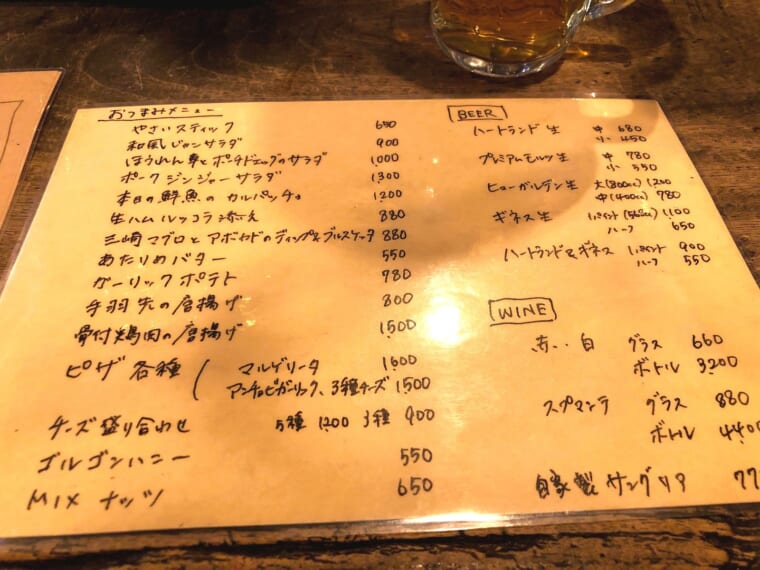 おつまみメニュー
やさいスティック 650
和風じゃこサラダ 900
ほうれん草とポーチドエッグのサラダ 1,000
ポークジンジャーサラダ 1300
本日の鮮魚のカルパッチョ 1200
生ハムルッコラ添え 880
三崎マグロとアボカドのディップ&ブルスケッタ 880
あたりめバター 550
ガーリックポテト 780
手羽先の唐揚げ 800
骨付鶏肉の唐揚げ 1500
ピザ各種 ( マルゲリータ 1600
アンチョビガーリック、3種チーズ 1500
チーズ盛り合わせ 5種 1200 3種 900
ゴルゴンハニー 550
MIX ナッツ 650
BEER
ハートランド生 中 680
小 450
プレミアムモルツ生 中 780
小 550
ヒューガルデン生 大(800cc) 1200
中(400cc) 780
ギネス生 1パイント 1,100
ハーフ 650
ハートランド&ギネス 1パイント 900
ハーフ 550
WINE
赤・白 グラス 660
ボトル 3200
スプマンテ グラス 880
ボトル 4400
自家製サングリア